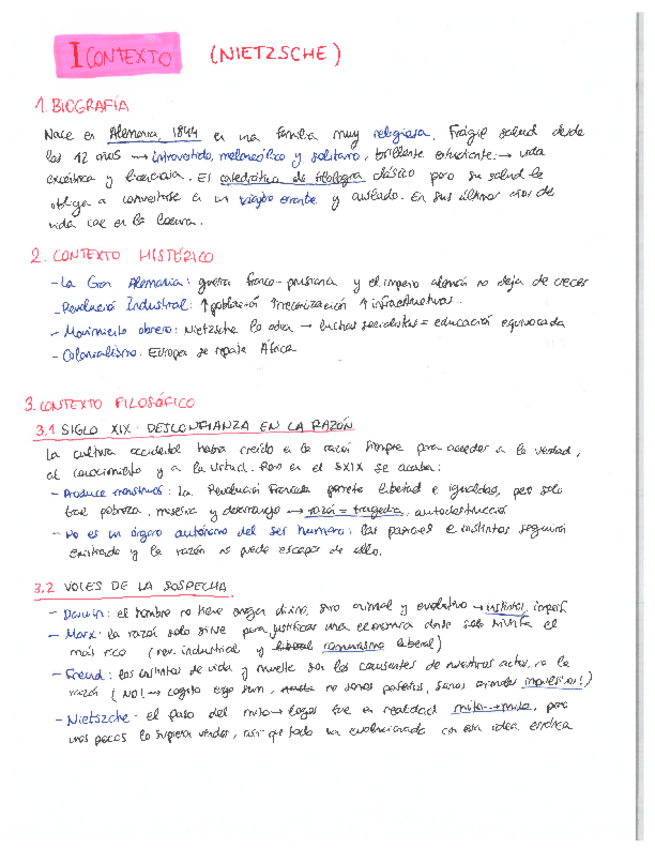 I CONTEXTO (NIETZSCHE)
1. BIOGRAFÍA
Nace en Alemania, 1844 en una familia muy religiosa. Frágil salud desde
los 12 años → introvertido, melancólico y solitario, brillante estudiante → vida
excéntrica y licenciada. Es catedrático de filología clásico pero su salud le
obliga a convertirse en un viajero errante y austeado. En sus últimos años de
vida cae en la locura.
2. CONTEXTO HISTÓRICO
- La Gran Alemania: guerra franco-prusiana y el imperio alemán no deja de crecer
- Revolució Industrial: ↑ población ↑ mecanización ↑ infraestructuras.
- Movimiento obrero: Nietzsche lo odia → luchas socialistas = educación equivocada
- Colonialismo. Europa se repate África
3. CONTEXTO FILOSÓFICO
3.1 SIGLO XIX: DESCONFIANZA EN LA RAZÓN
La cultura occidental había creído en la razón siempre para acceder a la verdad,
al conocimiento y a la virtud. Pero en el SXIX se acaba:
- Produce monstruos: la Revolución Francesa promete libertad e igualdad, pero solo
trae pobreza, miseria y desarraigo → razón = tragedia, autodestrucción
- No es un órgano autónomo del ser humano: las pasiones e instintos seguirán
existiendo y la razón no puede escapar de ello.
3.2 VOCES DE LA SOSPECHA
- Darwin: el hombre no tiene origen divino, sino animal y evolutivo → instintos,
- Marx: la razón solo sirve para justificar una economía donde solo invita el
más rico (rev. industrial y liberal comunismo liberal)
- Freud: los instintos de vida y muerte son los causantes de nuestros actos, no la
razón (NO! → cogito ergo sum, no somos animales impulsivos!)
- Nietszche: el paso del mito → logos fue en realidad mito → mito, pero
unos pocos lo supieron vender, así que todo ha evolucionado con esta idea errónea